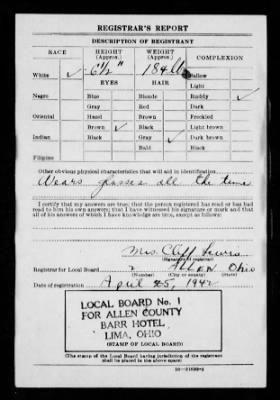 REGISTRAR'S REPORT
DESCRIPTION OF REGISTRANT
RACE
HEIGHT
(Approx.)
WEIGHT
(Approx.)
COMPLEXION
White ✓
184 lb
Sallow
Light
EYES
HAIR
Ruddy ✓
Negro
Blue
Blonde
Dark
Gray
Red
Freckled
Oriental
Hazel
Brown
Light brown
Brown ✓
Black
Dark brown
Indian
Black
Gray ✓
Black
Bald
Filipino
Other obvious physical characteristics that will aid in identification
Wears glasses all the time
I certify that my answers are true; that the person registered has read or has had
read to him his own answers; that I have witnessed his signature or mark and that
all of his answers of which I have knowledge are true, except as follows:
Mrs. Cliff Lewis
(Signature of registrar)
Registrar for Local Board
Allen Ohio
(Number) (City or county) (State)
Date of registration April 25, 1942
LOCAL BOARD No. 1
FOR ALLEN COUNTY
BARR HOTEL
LIMA, OHIO
(STAMP OF LOCAL BOARD)
(The stamp of the Local Board having jurisdiction of the registrant
shall be placed in the above space)